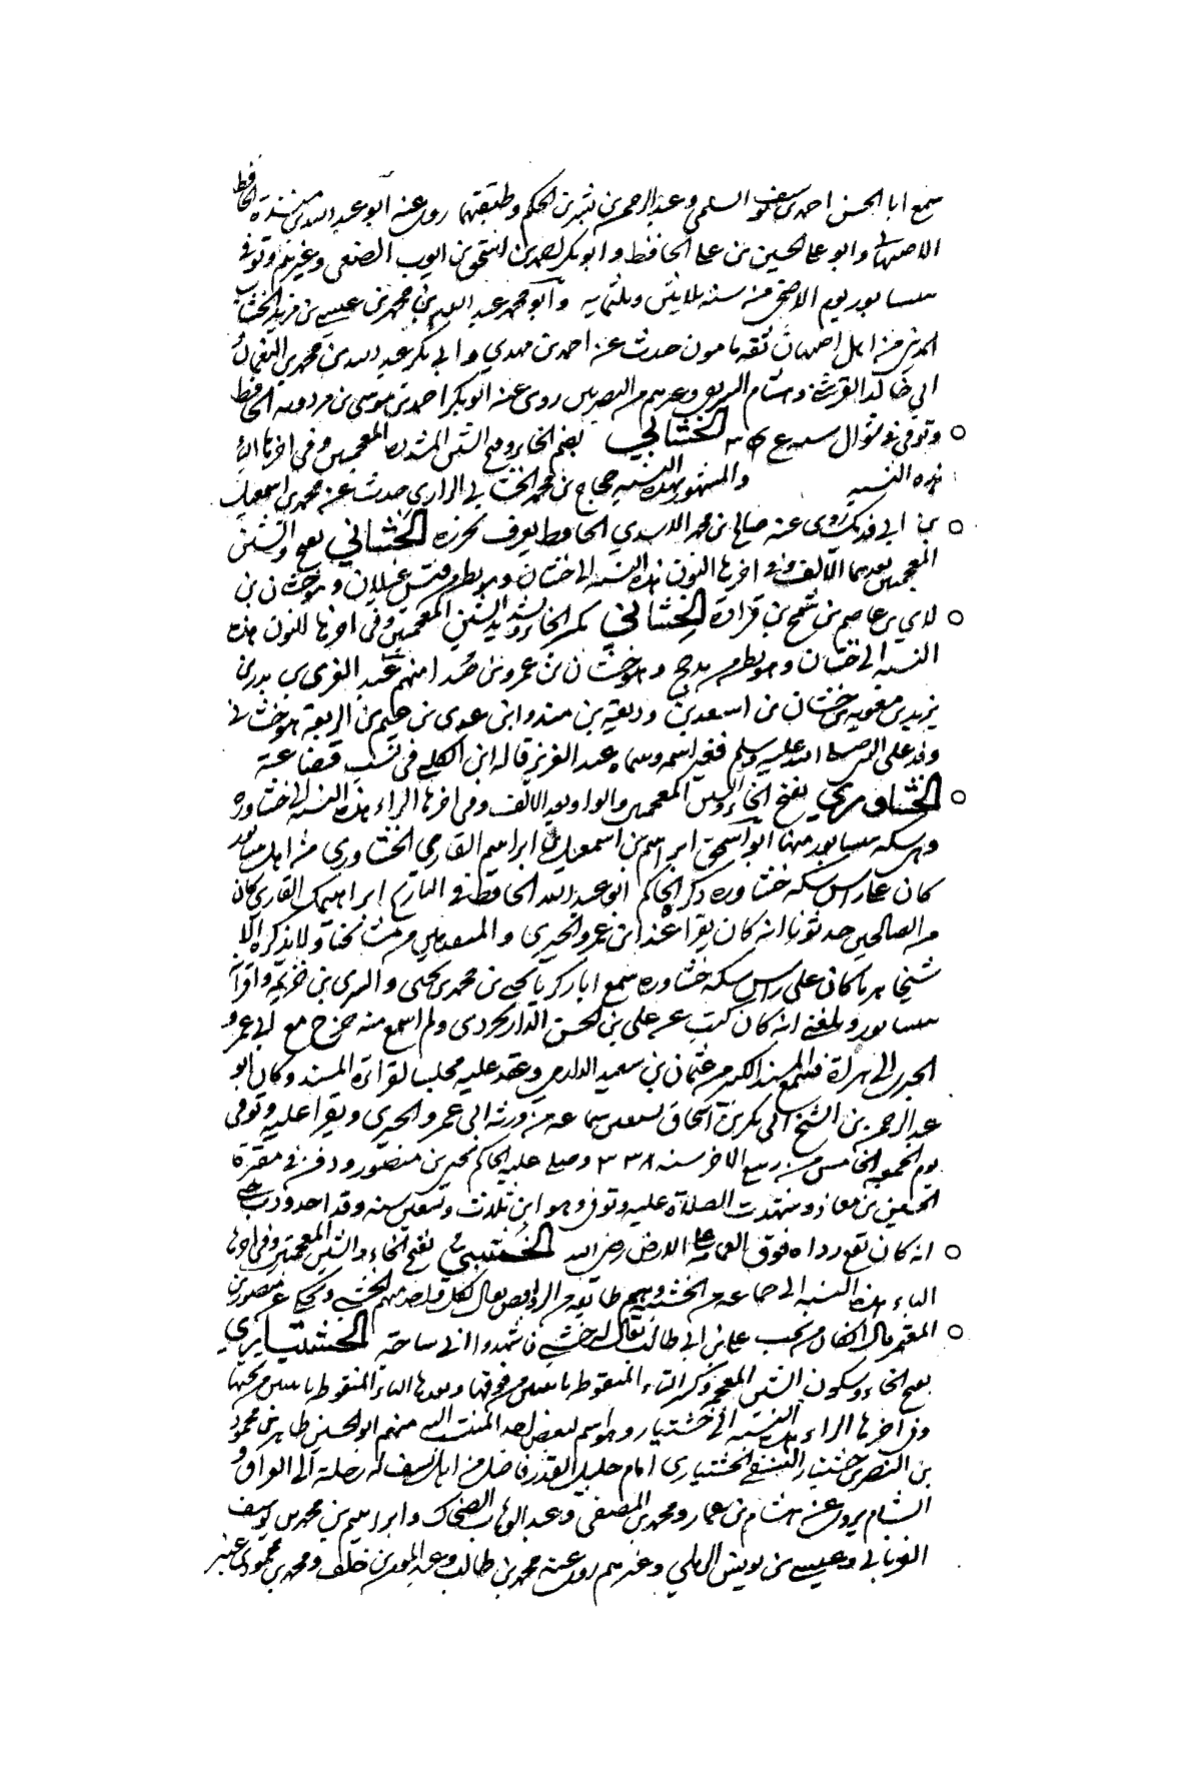 سمع ابا الحسن احمد بن يوسف السلمي وعبد الرحمن بن بشر بن الحكم وطبقتهما روى عنه ابو عبد الله بن مندة الحافظ
الاصبهاني وابو علي الحسين بن علي الحافظ وابو بكر احمد بن اسحق بن ايوب الصبغي وغيرهم وتوفي
بنيسابور يوم الاضحى من سنه ثلاثين وثلثمايه وابو محمد عبد الله بن محمد بن عيسى بن مزيد الخشاب
المديني من اهل اصبهان ثقه مامون حدث عن احمد بن مهدي وابي بكر عبد الله بن محمد بن النعمان
ابي خالد القرشي وهشام السيرافي وغيرهم من البصريين روى عنه ابو بكر احمد بن موسى بن مردويه الحافظ
وتوفي في شوال سنه الخشابي بضم الخاء وفتح الشين المشددة المعجمتين وفي اخرها الباء
هذه النسبه والمشهور بهذه النسبه حجاج بن محمد الخشابي الرازي حدث عن محمد بن اسمعيل
بن ابي فديك روى عنه صالح بن محمد الاسدي الحافظ يعرف بجزره الخشاني بفتح والشين
المعجمتين بعدهما الالف وفي اخرها النون هذه النسبه الى خشان وهو بطن من قيس غيلان وهو خشان بن
لاي بن عاصم بن شمخ بن فزارة الخشاني بكسر الخاء وتشديد الشين المعجمتين وفي اخرها النون هذه
النسبه الى خشان وهو بطن من مذحج وهو خشان بن عمرو بن صداء منهم عبد العزى بن بدر بن
يزيد بن معوية بن خشان بن اسعد بن وديعة بن مبذول بن عدي بن غنم بن الربعة هو خشاني
وفد على النبي صلى الله عليه وسلم فغير اسمه وسماه عبد العزيز قاله ابن الكلبي في نسب قضاعة
الخشاوري بفتح الخاء والشين المعجمتين والواو بعد الالف وفي اخرها الراء هذه النسبه الى خشاوره
وهي سكه بنيسابور منها ابو اسحق ابراهيم بن اسمعيل بن ابراهيم القاري الخشاوري من اهل نيسابور
كان على راس سكه خشاوره ذكره الحاكم ابو عبد الله الحافظ في التاريخ ابراهيمك القاري كان
من الصالحين حدثونا انه كان يقرا عند ابن عمرو الحيري والمتعبدين من مشايخنا ولا يذكره الا
شيخا هرما كان على راس سكه خشاوره سمع ابا زكريا يحيى بن محمد بن يحيى والسري بن خزيمة واقرانهما
بنيسابور وبلغني انه كان كتب عن علي بن الحسن الدارابجردي ولم اسمع منه خرج مع ابي عمرو
الحيري الى هراة فسمع المسند الكبير من عثمان بن سعيد الدارمي وعقد عليه مجلب لقراة المسند وكان ابو
عبد الرحمن بن الشيخ ابي بكر بن اسحاق يستعير سماعه من ورثة ابي عمرو الحيري ويقرا عليه وتوفي
يوم الجمعه الخامس من ربيع الاخر سنه ٣٣٨ وصلى عليه الحاكم يحيى بن منصور ودفن في مقبرة
الحسين بن معاذ وشهدت الصلاة عليه وتوفي وهو ابن ثلاث وتسعين سنه وقد احدودب حتى
انه كان يقع رداه فوق العمامة على الارض رحمه الله الخشبي بفتح الخاء والشين المعجمتين وفي اخرها
الباء هذه النسبه الى جماعه من الخشبيه وهم طايفه من الروافض يقال لكل واحد منهم الخشبي ويحكى عن منصور بن
المعتمر قال ان كان من يحب علي بن ابي طالب يقال له خشبي فاشهدوا اني ساحبه الخشتياري
بفتح الخاء وسكون الشين المعجمة وكسر التاء المنقوطة باثنتين من فوقها وبعدها الياء المنقوطة باثنتين من تحتها
وفي اخرها الراء هذه النسبه الى خشتيار وهو اسم لبعض اجداد المنتسب اليه منهم ابو الحسن طاهر بن محمود
بن النضر بن خشتيار النسفي الخشتياري امام جليل القدر فاضل من اهل نسف له رحلة الى العراق و
الشام يروي عن هشام بن عمار ومحمد بن المصفى وعبد الوهاب بن الضحاك وابراهيم بن محمد بن يوسف
الفريابي وعيسى بن يونس الرملي وغيرهم روى عنه محمد بن طالب وعبد المومن بن خلف ومحمد بن محمود بن عنبر